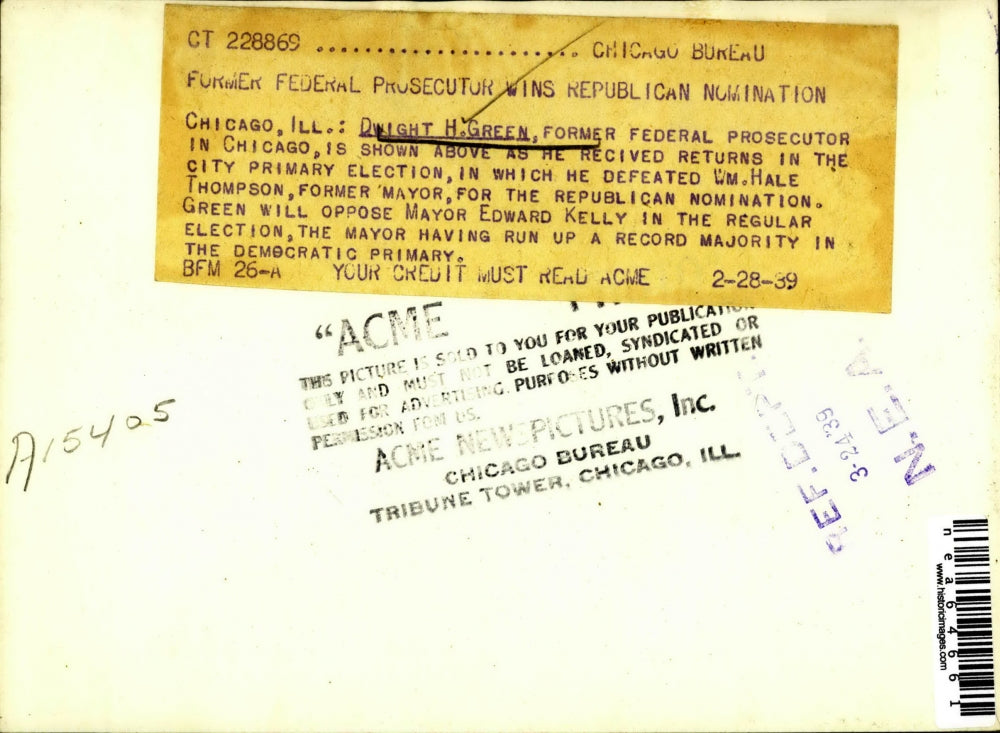 CT 228869 ...................... CHICAGO BUREAU
FORMER FEDERAL PROSECUTOR WINS REPUBLICAN NOMINATION
CHICAGO, ILL.: DWIGHT H. GREEN, FORMER FEDERAL PROSECUTOR
IN CHICAGO, IS SHOWN ABOVE AS HE RECIVED RETURNS IN THE
CITY PRIMARY ELECTION, IN WHICH HE DEFEATED WM. HALE
THOMPSON, FORMER MAYOR, FOR THE REPUBLICAN NOMINATION.
GREEN WILL OPPOSE MAYOR EDWARD KELLY IN THE REGULAR
ELECTION, THE MAYOR HAVING RUN UP A RECORD MAJORITY IN
THE DEMOCRATIC PRIMARY.
BFM 26-A YOUR CREDIT MUST READ ACME 2-28-39
"ACME
THIS PICTURE IS SOLD TO YOU FOR YOUR PUBLICATION
ONLY AND MUST NOT BE LOANED, SYNDICATED OR
USED FOR ADVERTISING PURPOSES WITHOUT WRITTEN
PERMISSION FROM US.
ACME NEWSPICTURES, Inc.
CHICAGO BUREAU
TRIBUNE TOWER, CHICAGO, ILL.
A15405
REF. DEPT.
3-24-39
N. E. A.
nea64661
www.historicimages.com